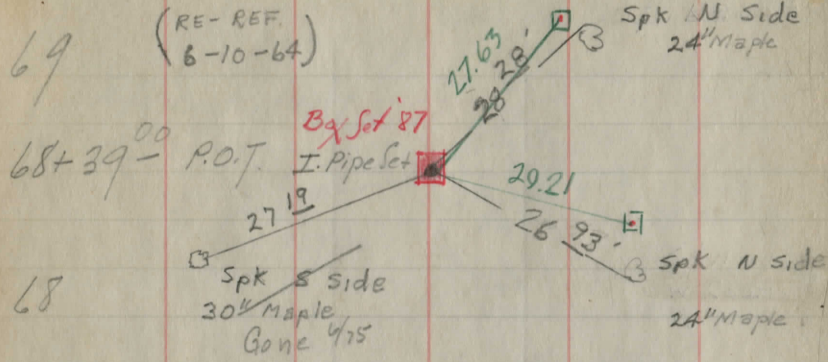 69
(RE-REF.
6-10-64)
Spk N. Side
24" Maple
27.63
28.28'
Box Set '87
68+39 00 P.O.T. I. Pipe Set
29.21
27 19
26 93'
Spk N Side
24" Maple
68
Spk S Side
30" Maple
Gone 4/75